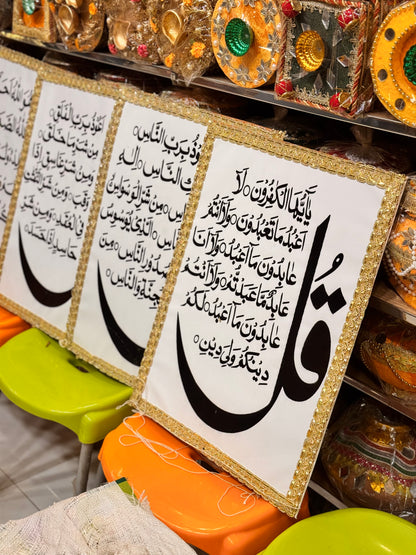 قُلْ
يٰٓاَيُّهَا الْكٰفِرُوْنَ ۝ لَآ
اَعْبُدُ مَا تَعْبُدُوْنَ ۝ وَلَآ اَنْتُمْ
عٰبِدُوْنَ مَآ اَعْبُدُ ۝ وَلَآ اَنَا
عَابِدٌ مَّا عَبَدْتُّمْ ۝ وَلَآ اَنْتُمْ
عٰبِدُوْنَ مَآ اَعْبُدُ ۝ لَكُمْ
دِيْنُكُمْ وَلِيَ دِيْنِ ۝
بِرَبِّ النَّاسِ ۝
النَّاسِ ۝ اِلٰهِ
مِنْ شَرِّ الْوَسْوَاسِ
الَّذِيْ يُوَسْوِسُ
صُدُوْرِ النَّاسِ ۝ مِنَ
وَالنَّاسِ ۝
اَعُوْذُ بِرَبِّ الْفَلَقِ ۝
مِنْ شَرِّ مَا خَلَقَ ۝
وَمِنْ شَرِّ غَاسِقٍ اِذَا
وَقَبَ ۝ وَمِنْ شَرِّ النَّفّٰثٰتِ
فِي الْعُقَدِ ۝ وَمِنْ شَرِّ
حَاسِدٍ اِذَا حَسَدَ ۝